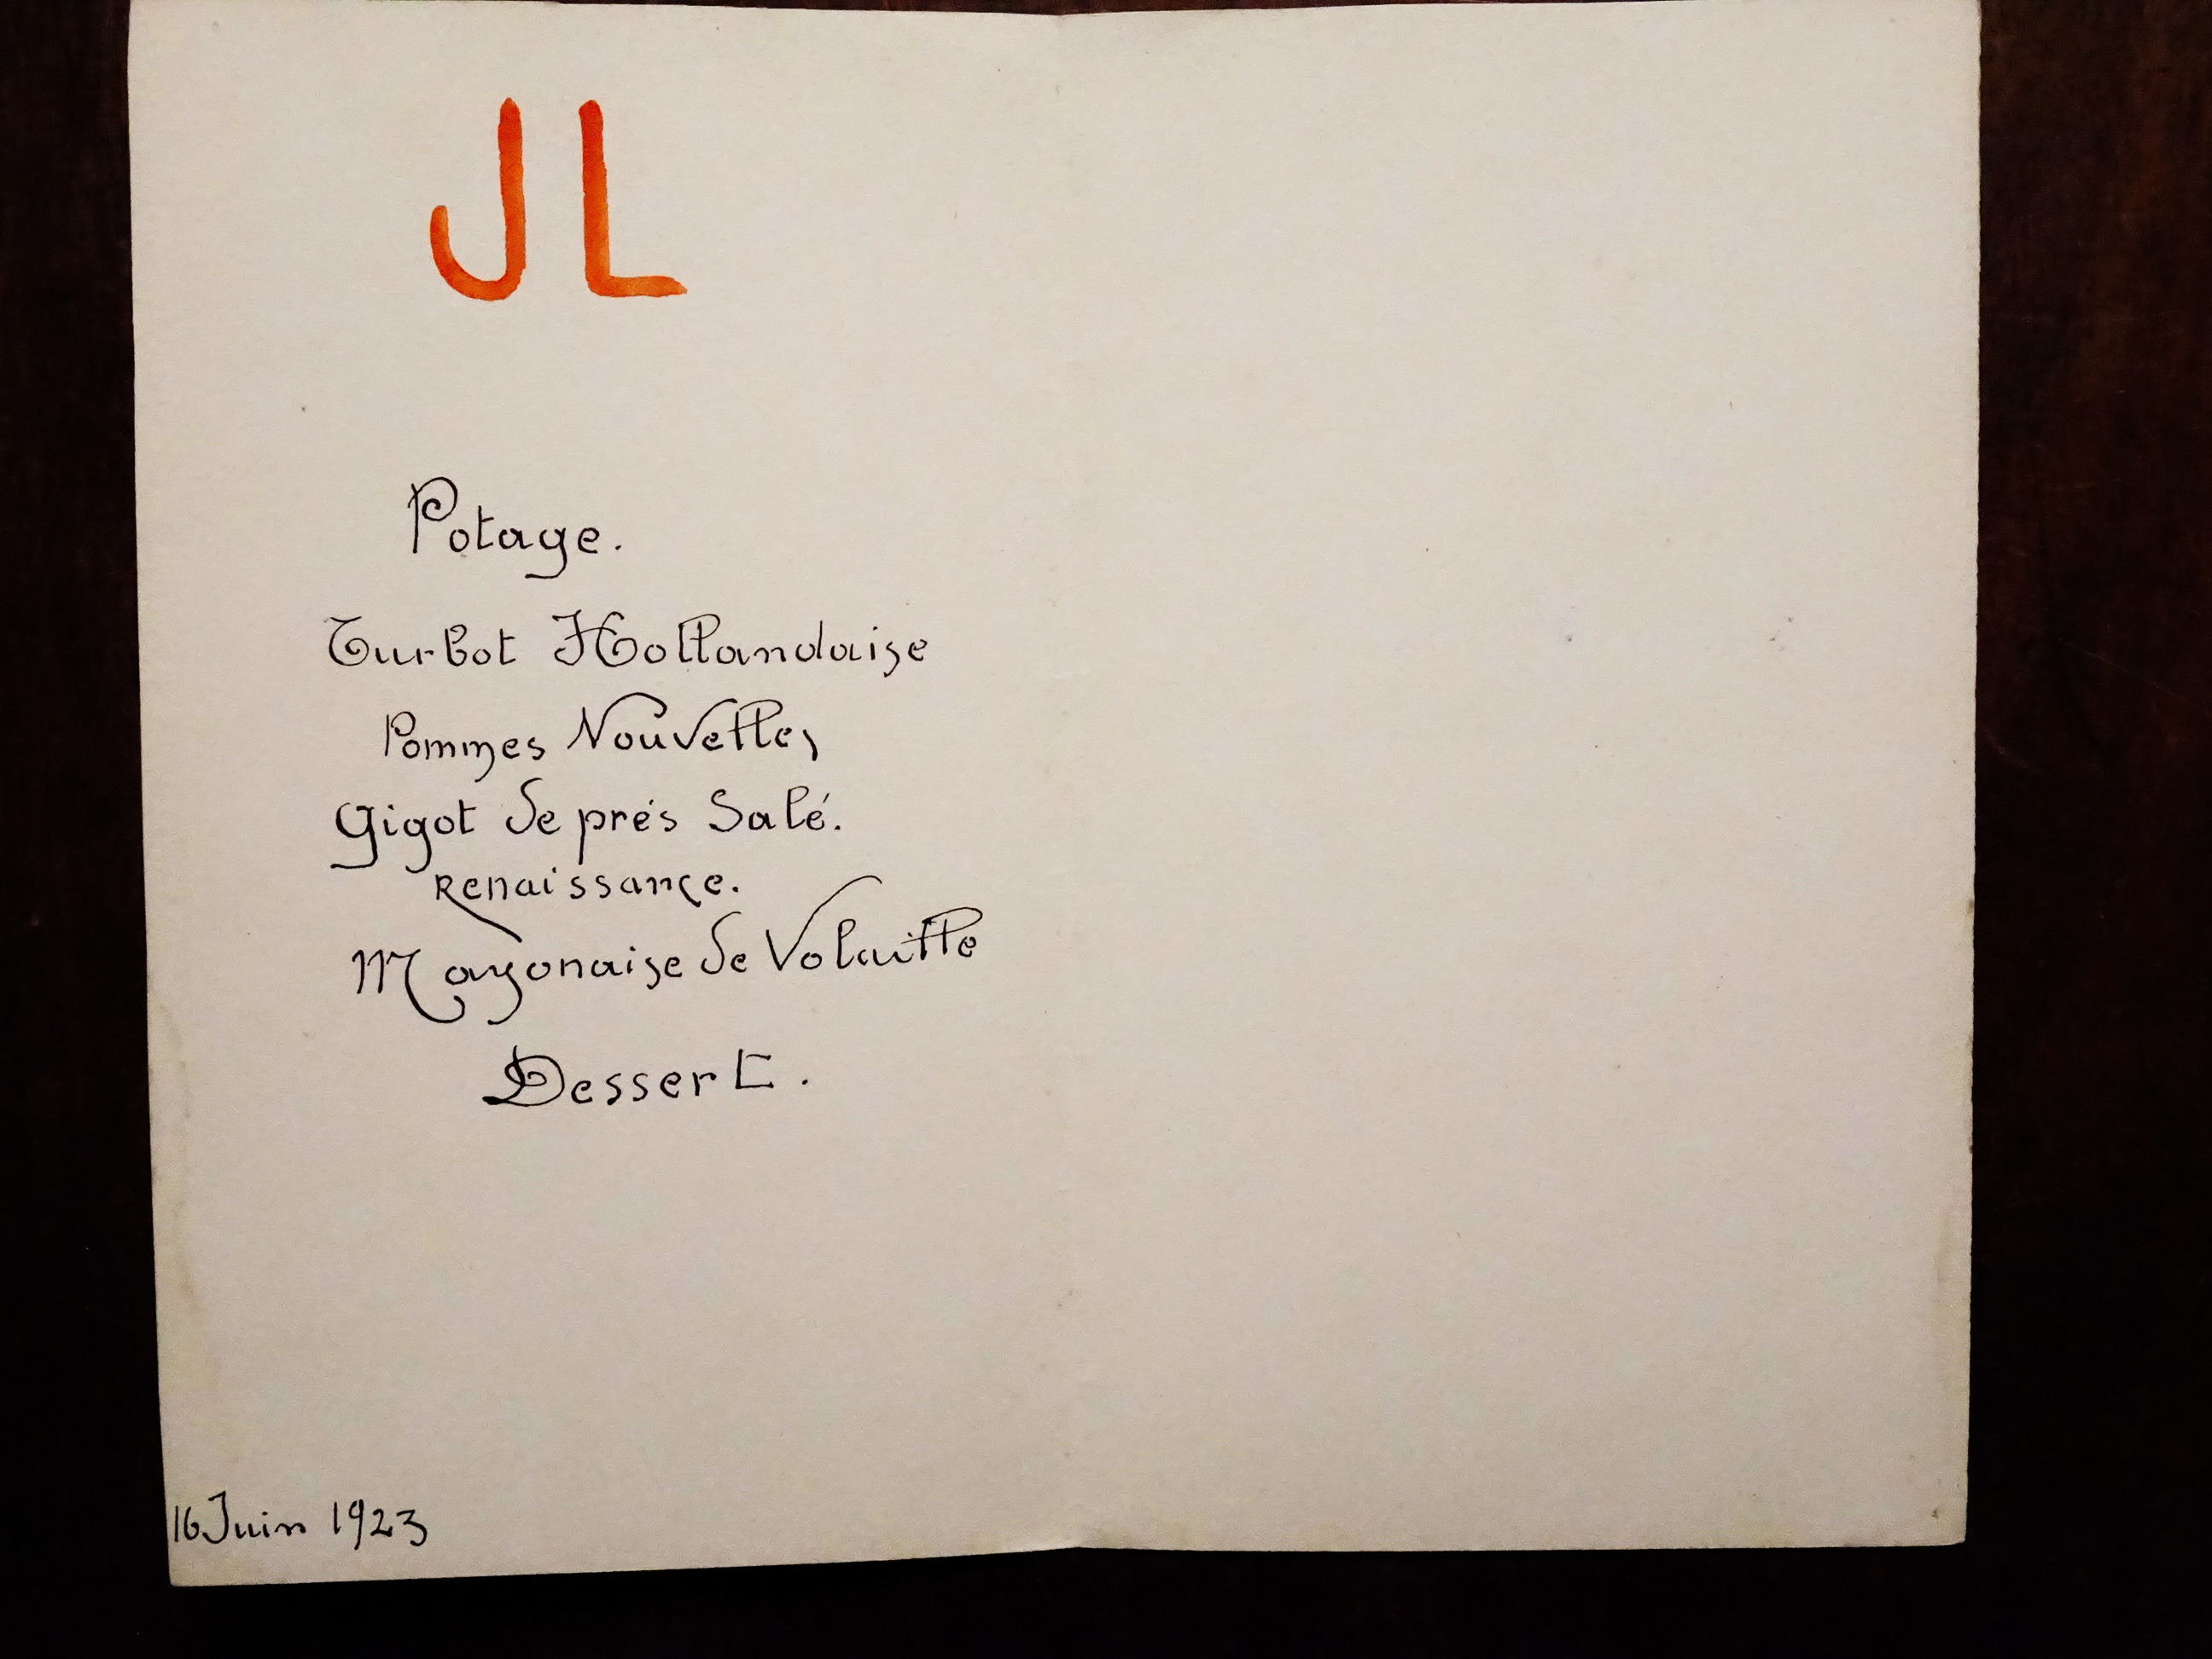 JL
Potage.
Turbot Hollandaise
Pommes Nouvelles
Gigot de prés Salé.
Renaissance.
Mayonaise de Volaille
Dessert.
16 Juin 1923